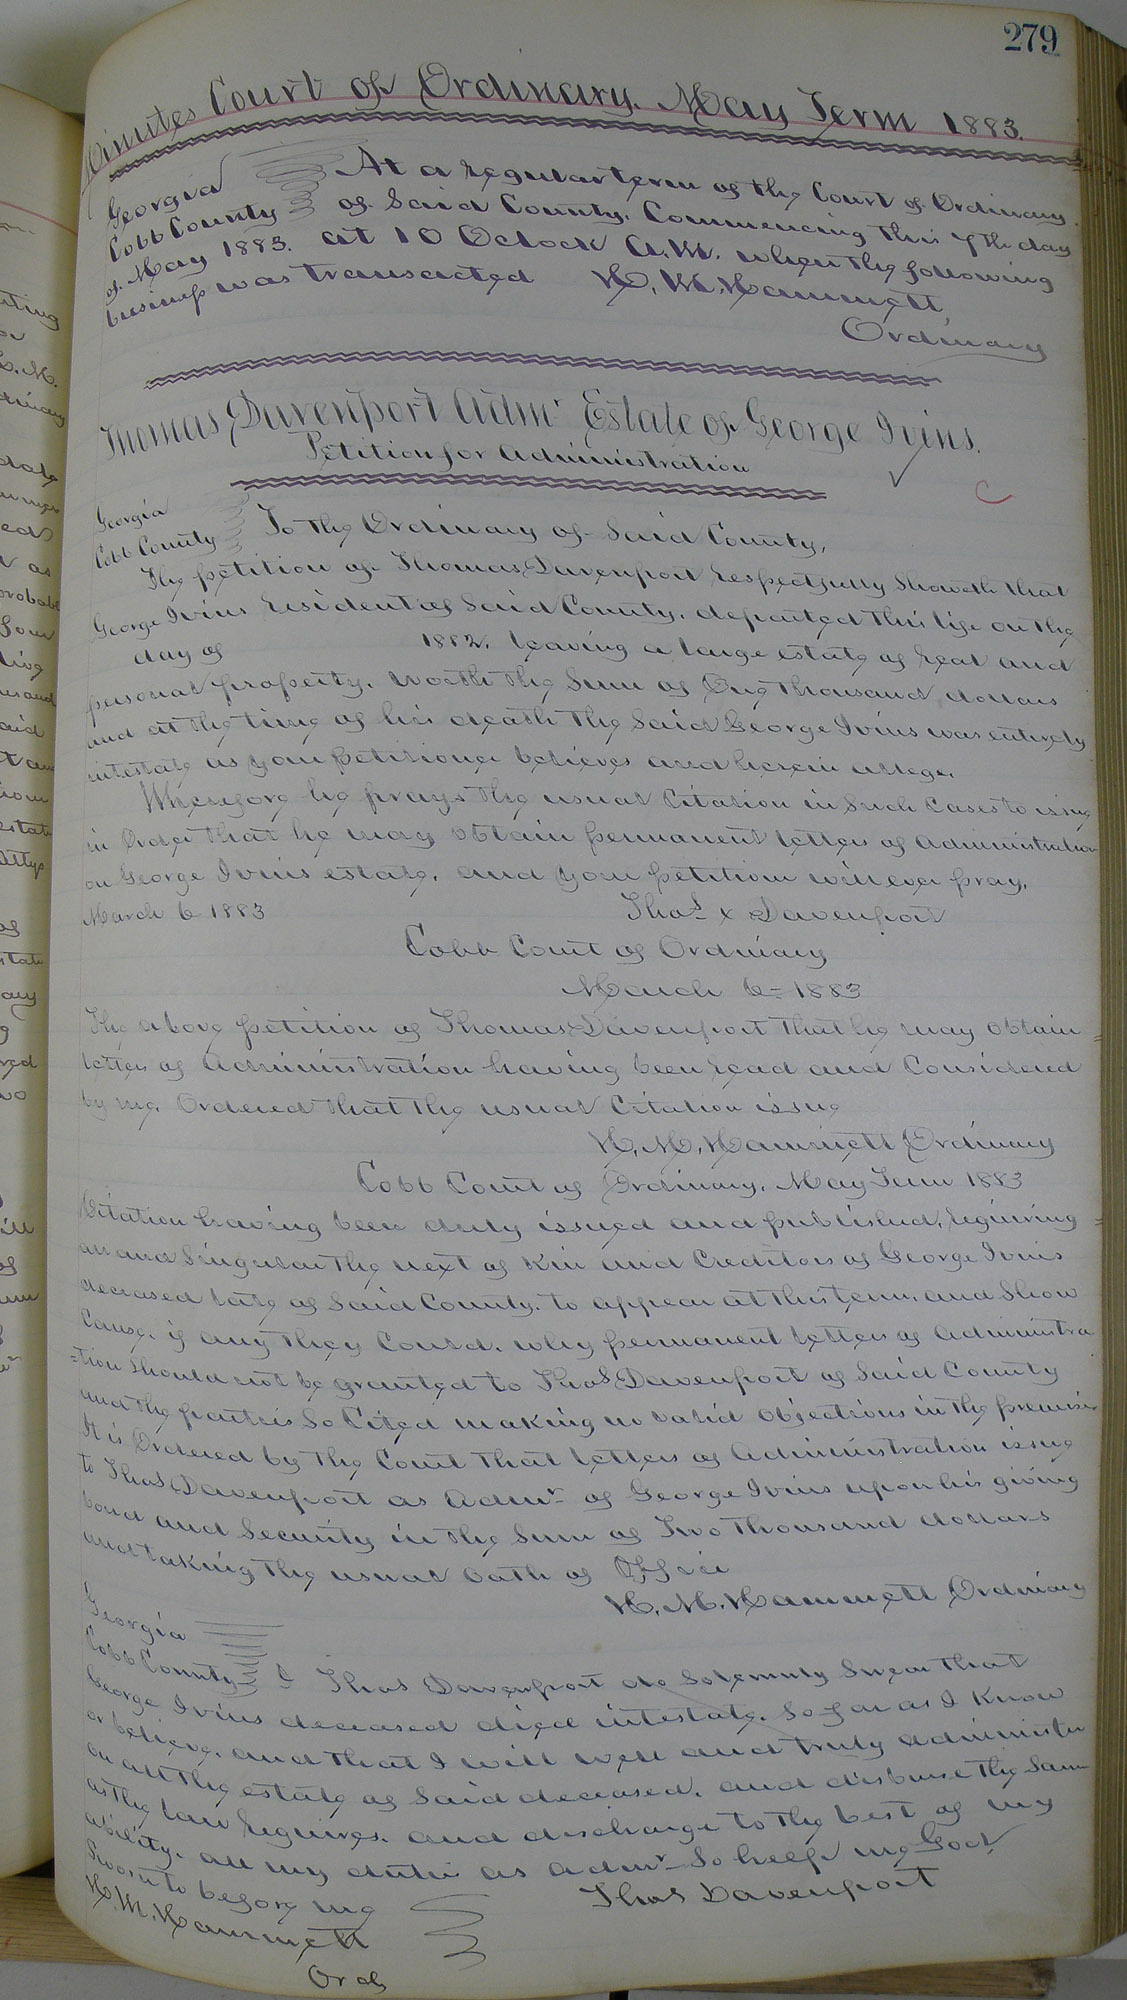 279
Minutes Court of Ordinary. May Term 1883.
Georgia At a regular term of the Court of Ordinary
Cobb County of Said County. Commencing this 7th day
of May 1883. at 10 Oclock A.M. when the following
business was transacted H. M. Hammett
Ordinary
Thomas Davenport Admr Estate of George Ivins.
Petition for Administration
Georgia
Cobb County To the Ordinary of Said County,
The petition of Thomas Davenport respectfully Showeth that
George Ivins resident of Said County, departed this life on the
day of 1882. leaving a large estate of real and
personal property. worth the Sum of One thousand dollars
and at the time of his death the Said George Ivins was entirely
intestate as your petitioner believes and herein allege.
Wherefore he prays the usual Citation in Such Cases to issue
in Order that he may obtain permanent letters of administration
on George Ivins estate, and your petition will ever pray.
March 6 1883 Thos x Davenport
Cobb Court of Ordinary
March 6= 1883
The above petition of Thomas Davenport that he may obtain =
letters of Administration having been read and Considered
by me. Ordered that the usual Citation issue
H. M. Hammett Ordinary
Cobb Court of Ordinary. May Term 1883
Citation having been duly issued and published, requiring =
all and Singular the next of Kin and Creditors of George Ivins
deceased late of Said County. to appear at this term, and Show
Cause, if any they Could, why permanent letters of Administra
=tion Should not be granted to Thos Davenport of Said County
and the parties So Cited making no valid objections in the premises
It is Ordered by the Court that letters of Administration issue
to Thos Davenport as Admr of George Ivins upon his giving
bond and Security in the Sum of Two thousand dollars
and taking the usual oath of Office
H. M. Hammett Ordinary
Georgia
Cobb County I Thos Davenport do Solemnly Swear that
George Ivins deceased died intestate, So far as I Know
or believe, and that I will well and truly administer
on all the estate of Said deceased, and disburse the Same
as the law requires, and discharge to the best of my
ability, all my duties as admr So help me God
Sworn to before me Thos Davenport
H. M. Hammett
Ord